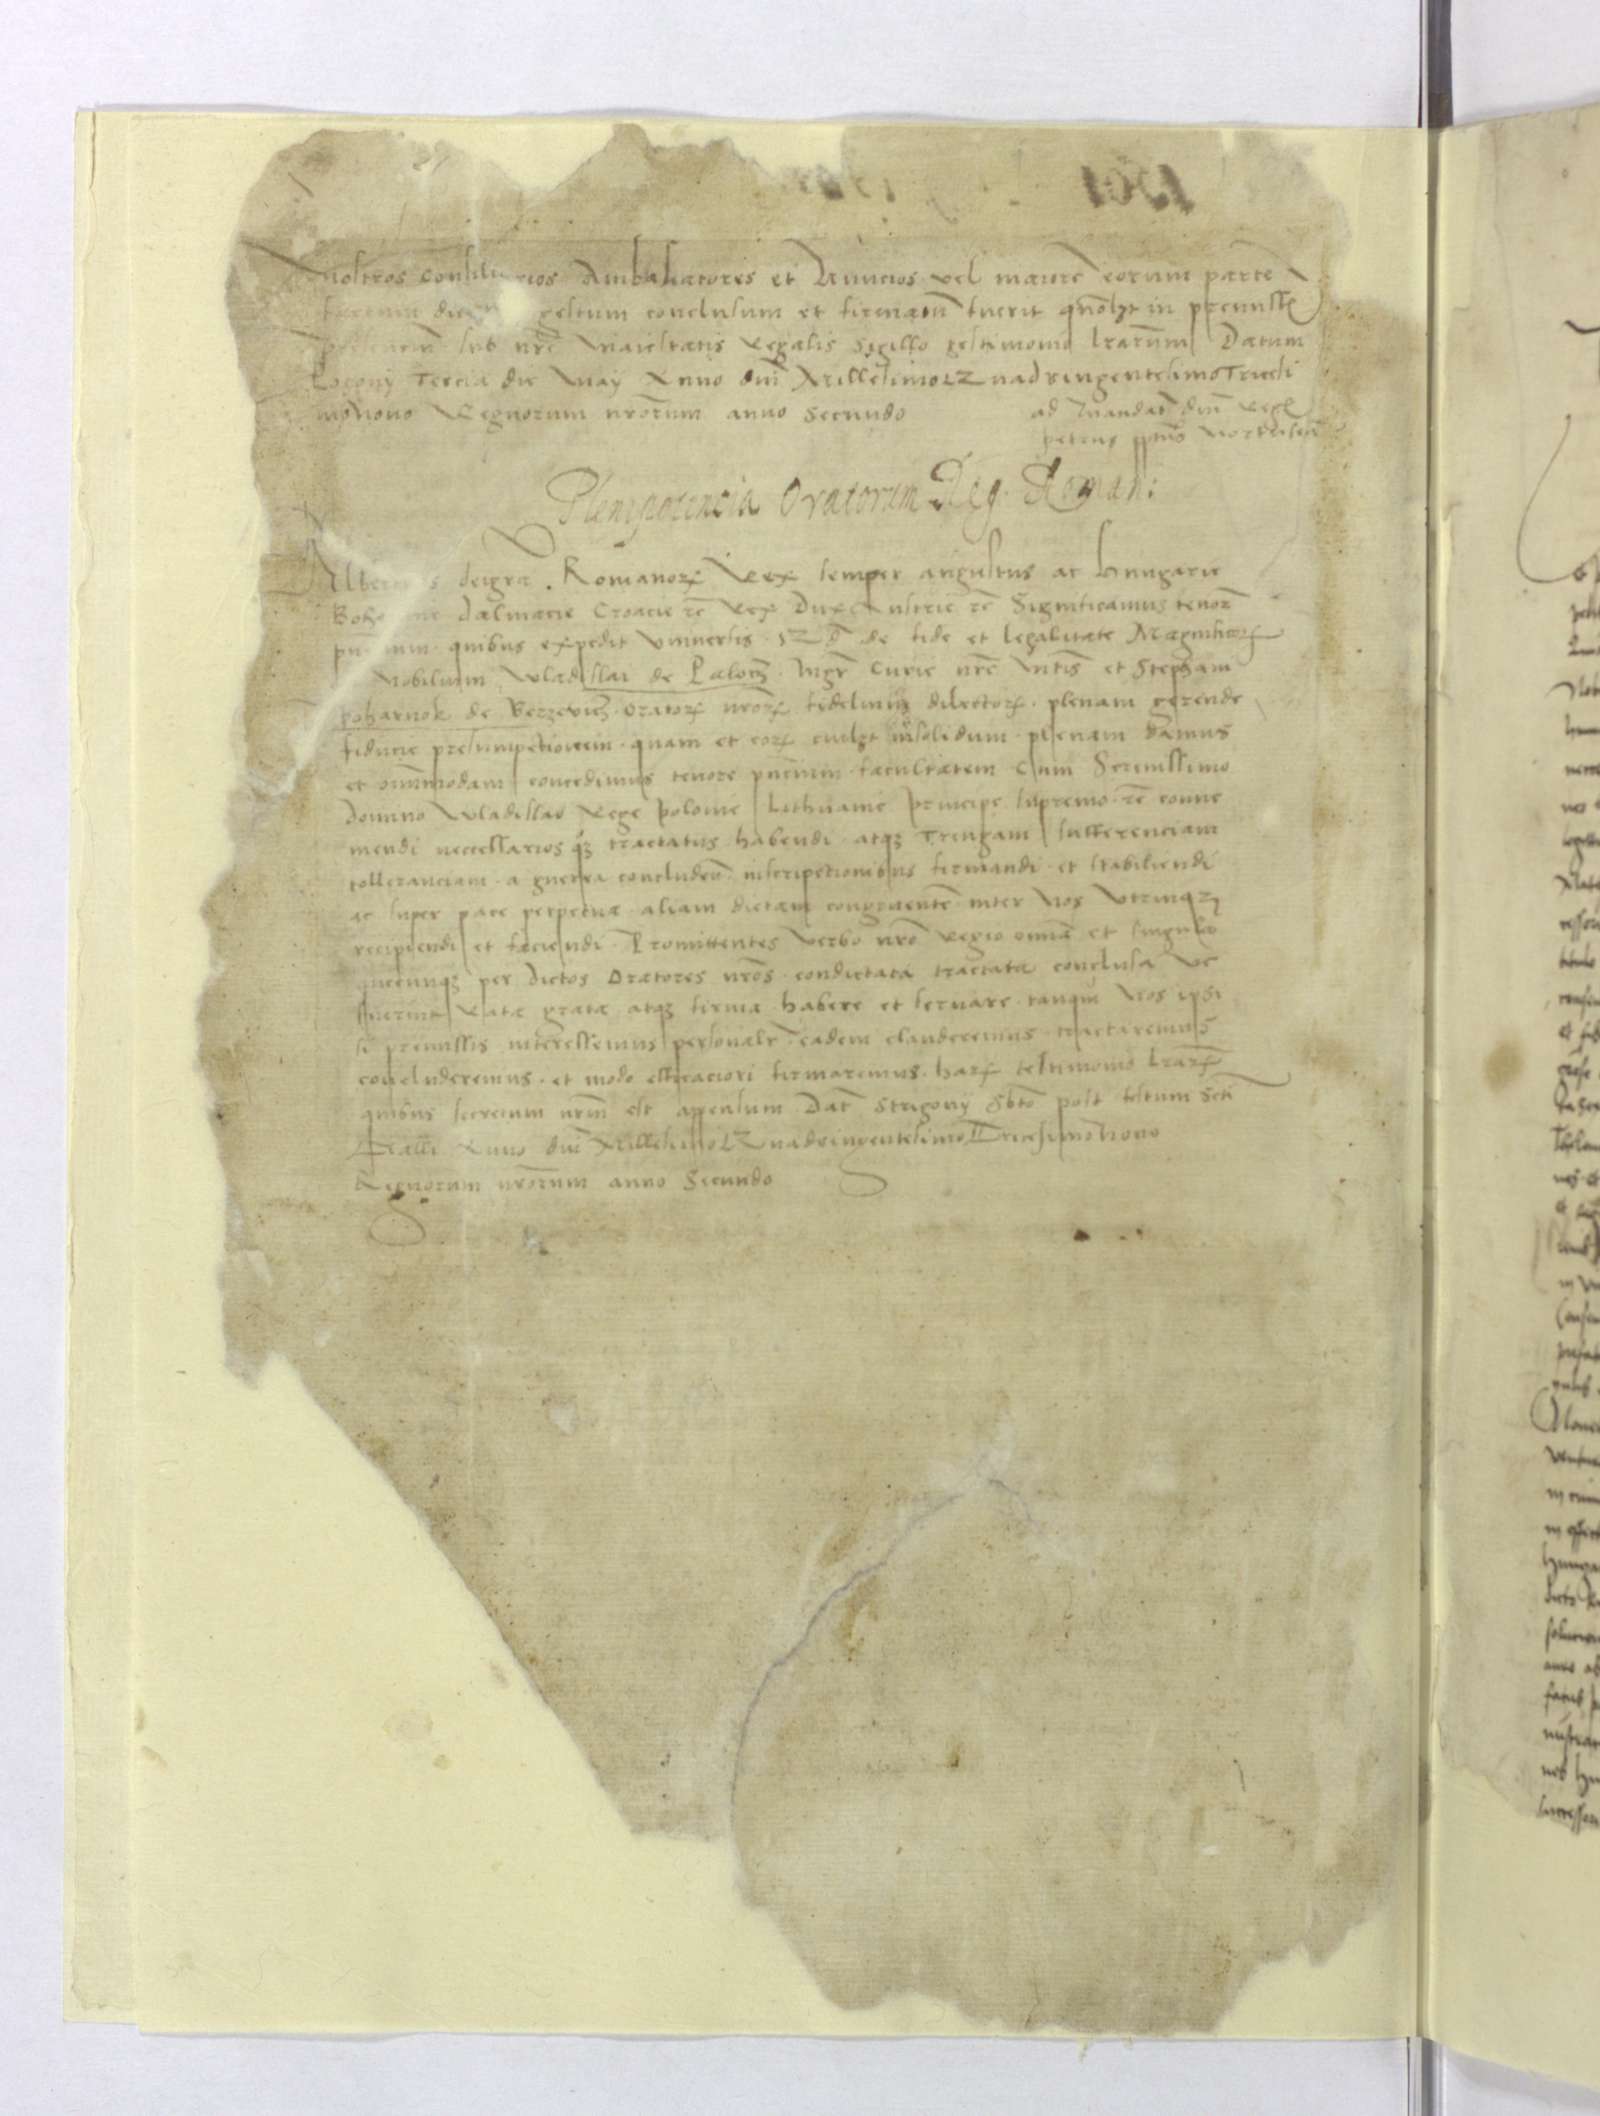 nostros consiliarios Ambasiatores et Nuncios vel maiore eorum parte
factum gestum conclusum et firmatum fuerit in premissis
sub nre Maiestatis Regalis Sigillo testimonio lrarum Datum
Posonij Tercia die May Anno dni Millesimo Quadringentesimo Tricesi
monono Regnorum nrorum anno Secundo ad Mandat dni Regis
petrus
Plenipotencia Oratorum Reg. Roman:
Albertus deigra Romanor Rex semper augustus ac Hungarie
Bohemie dalmacie Croacie rc Rex Dux Austrie rc Significamus tenor
quibus expedit vniuersis de fide et legalitate Magnificor
Nobilium Wladislai de Palocz Mgr Curie nre et Stephani
poharnok de Berzeuicz Orator nror fidelium dilector plenam gerende
fiducie presumpctionem quam et eor cuilzt insolidum plenam damus
et omnimodam concedimus tenore pncium facultatem Cum Serenissimo
domino Wladislao Rege polonie Lithuanie principe supremo rc conue
mendi neccessarios qz tractatus habendi atqz Treugam sufferenciam
tolleranciam a guerra concludend inscripctionibus firmandi et stabiliendi
ac super pace perpetua aliam dietam congruente inter Nos Vtrinqz
recipiendi et faciendi Promittentes verbo nro Regio omia et singula
quecunqz per dictos Oratores nros condictata tractata conclusa ve
fuerint Rata grata atqz firma habere et seruare tanqm Nos ipsi
si premissis interessemus personalr eadem clauderemus tractaremus
concluderemus et modo efficaciori firmaremus har testimonio lrar
quibus secretum nrm est appensum Dat Strigonij Sbto post festum Scti
Galli Anno dni Millesimo Quadringentesimo Tricesimo Nono
Regnorum nrorum anno Secundo